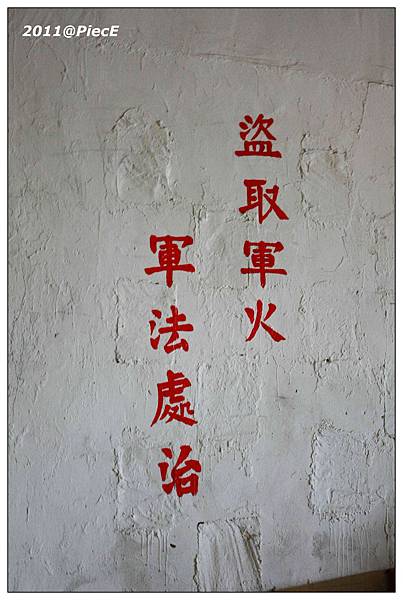 2011@PiecE
盜取軍火
軍法處治